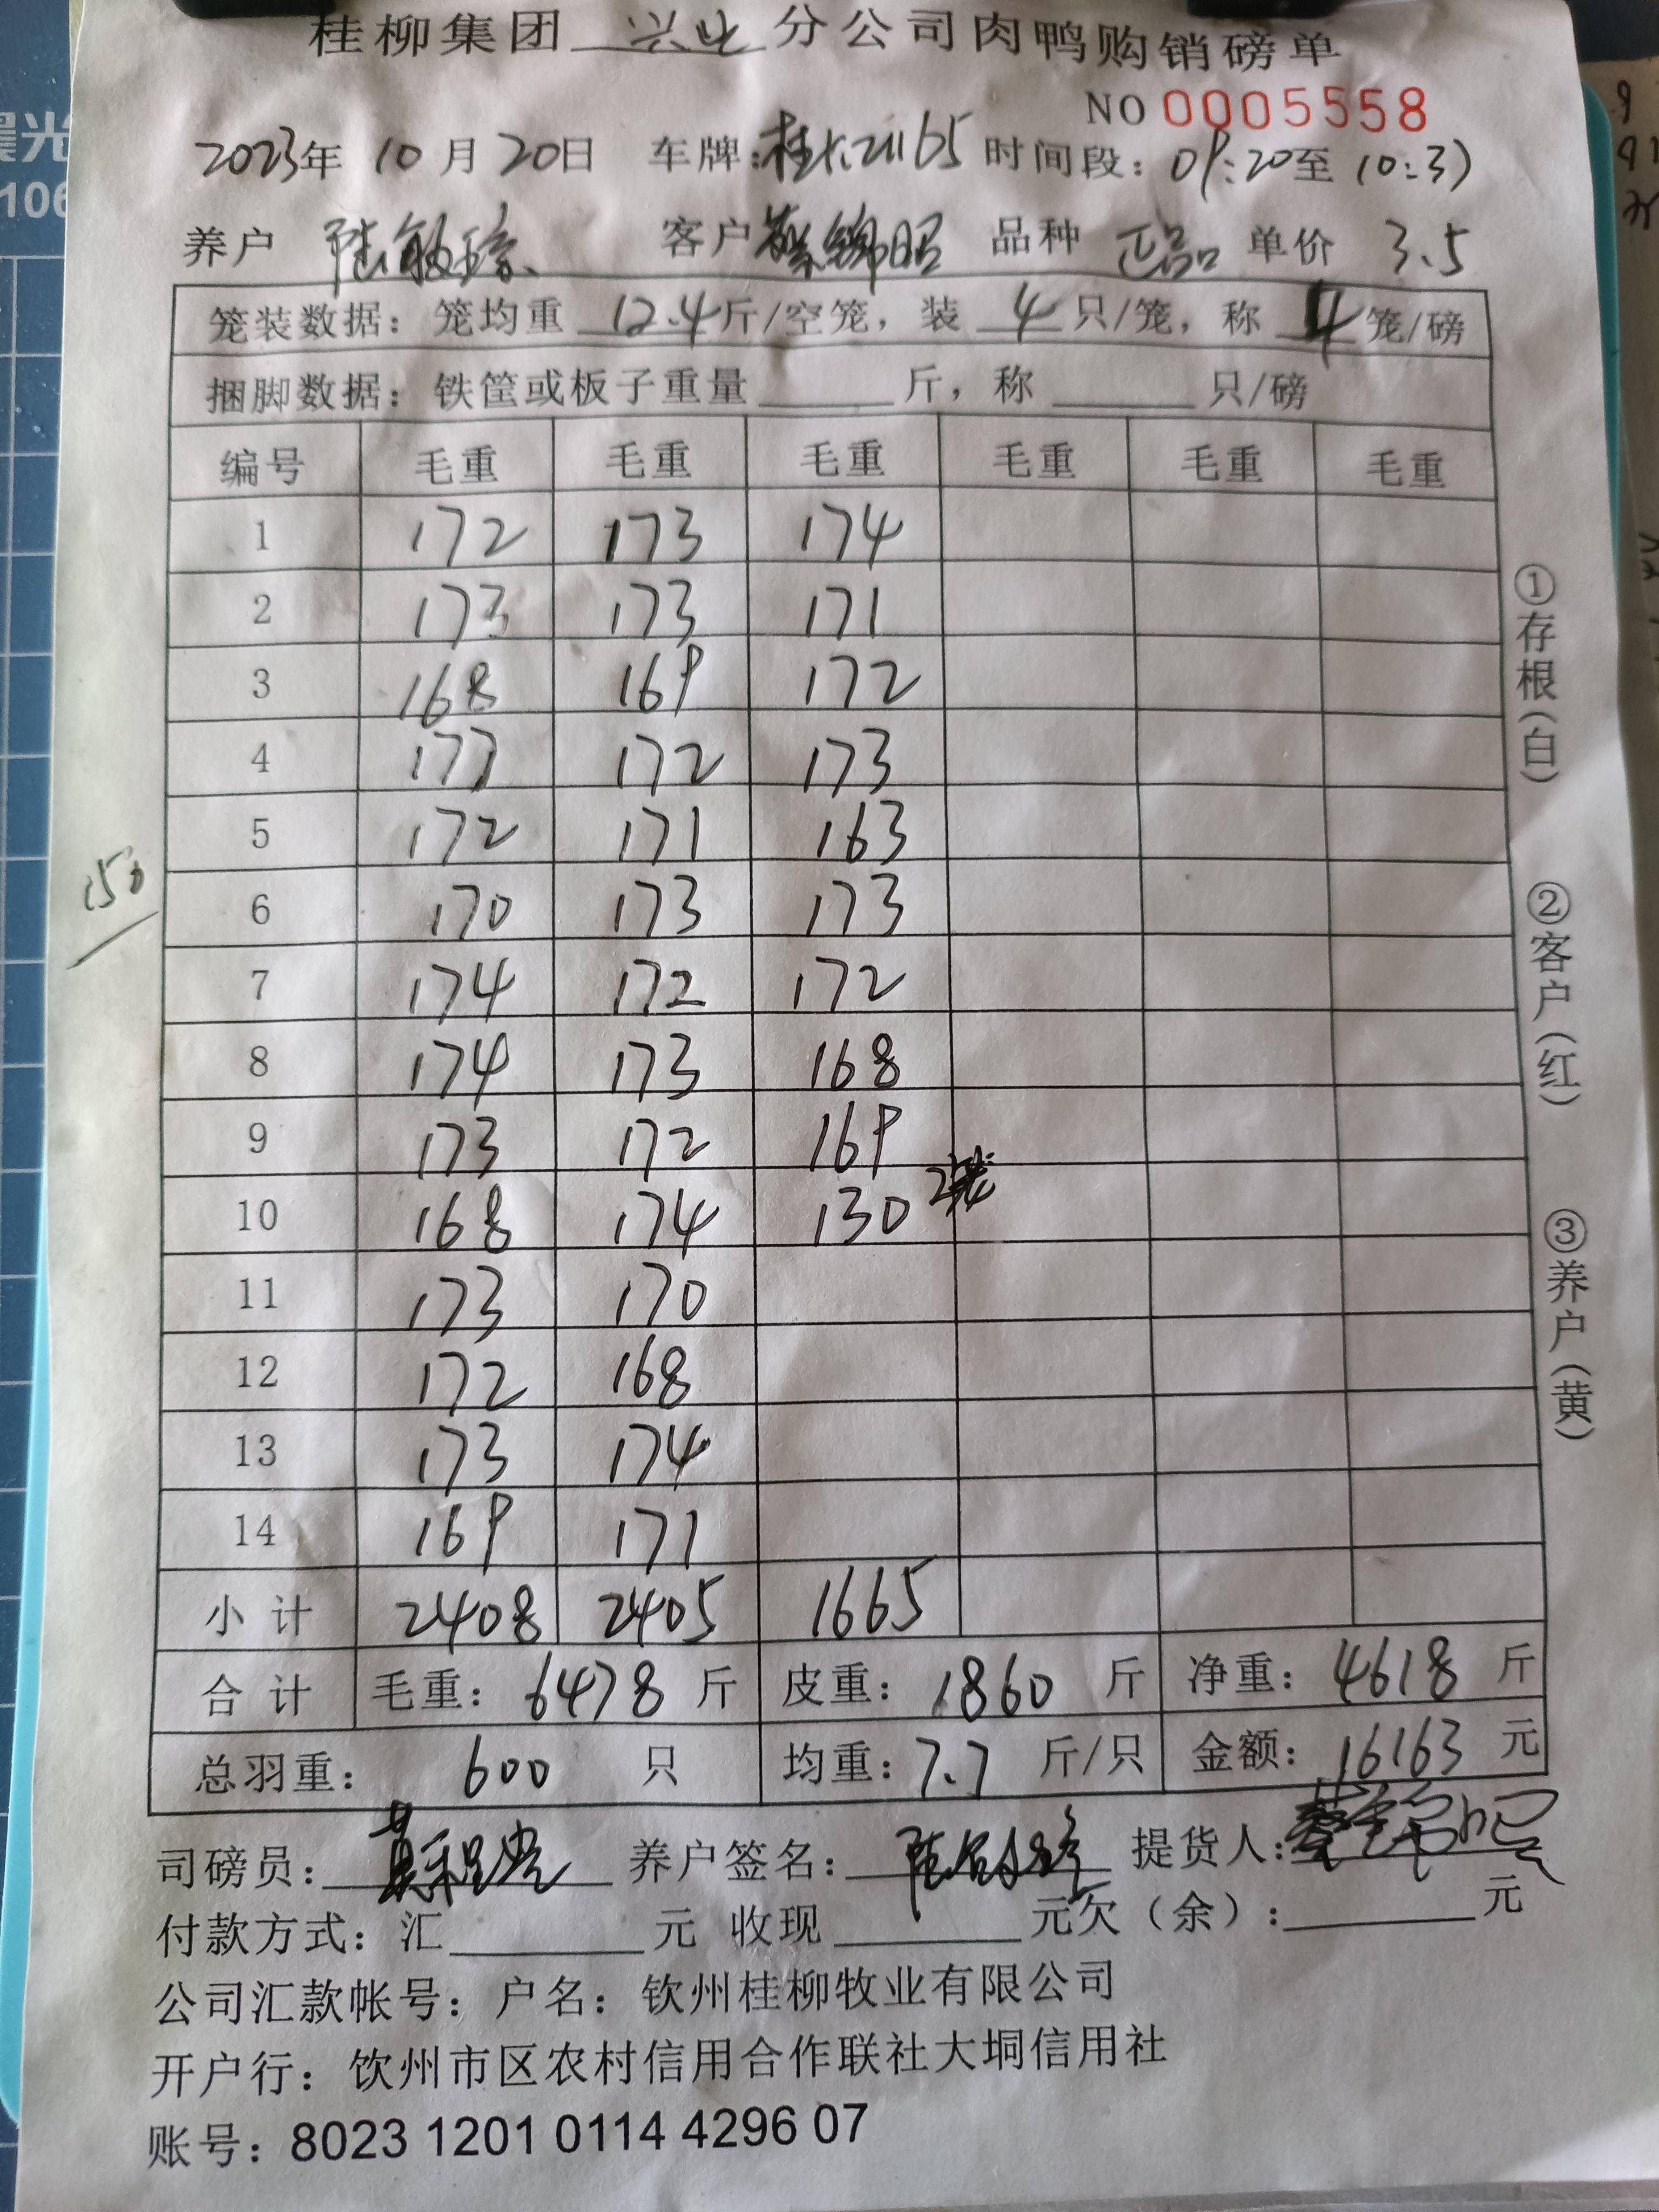 桂柳集团 兴业 分公司肉鸭购销磅单
NO 0005558
2023年 10 月 20日 车牌: 时间段: 09:20至 10:3
养户 陆敏 客户 蔡锦昭 品种 正品 单价 3.5
笼装数据: 笼均重 12.4 斤/空笼, 装 4 只/笼, 称 4 笼/磅
捆脚数据: 铁筐或板子重量 斤, 称 只/磅
编号 毛重 毛重 毛重 毛重 毛重 毛重
1 172 173 174
2 173 173 171
3 168 169 172
4 177 172 173
5 172 171 163
6 170 173 173
7 174 172 172
8 174 173 168
9 173 172 169
10 168 174 130
11 173 170
12 172 168
13 173 174
14 169 171
小计 2408 2405 1665
合计 毛重: 6478 斤 皮重: 1860 斤 净重: 4618 斤
总羽重: 600 只 均重: 7.7 斤/只 金额: 16163 元
司磅员: 养户签名: 提货人:
付款方式: 汇 元 收现 元欠(余): 元
公司汇款帐号: 户名: 钦州桂柳牧业有限公司
开户行: 钦州市区农村信用合作联社大垌信用社
账号: 8023 1201 0114 4296 07
①存根(白)
②客户(红)
③养户(黄)
150
晨光
106